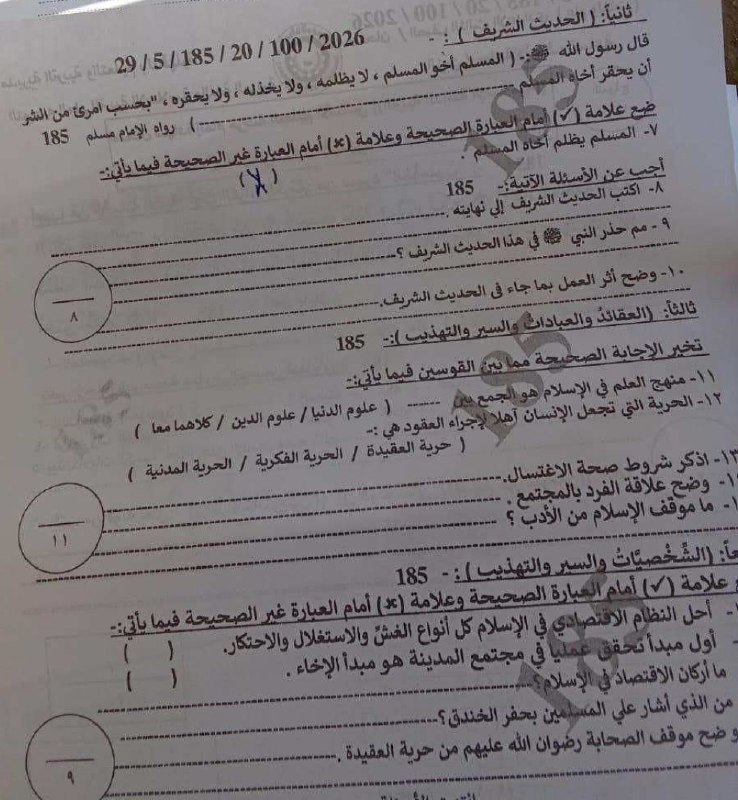 ثانياً: ( الحديث الشريف ) :-
29 / 5 / 185 / 20 / 100 / 2026
قال رسول الله ﷺ:- ( المسلم أخو المسلم ، لا يظلمه ، ولا يخذله ، ولا يحقره ، "بحسب امرئ من الشر
أن يحقر أخاه المسلم ............ ) رواه الإمام مسلم 185
ضع علامة (✓) أمام العبارة الصحيحة وعلامة (×) أمام العبارة غير الصحيحة فيما يأتي:-
٧- المسلم يظلم أخاه المسلم . ( X )
أجب عن الأسئلة الآتية:- 185
٨- اكتب الحديث الشريف إلي نهايته .
٩ - مم حذر النبي ﷺ في هذا الحديث الشريف ؟
١٠- وضح أثر العمل بما جاء فى الحديث الشريف.
٨
ثالثاً: (العقائد والعبادات والسير والتهذيب ):- 185
تخير الإجابة الصحيحة مما بين القوسين فيما يأتي:-
١١- منهج العلم في الإسلام هو الجمع بين ------ ( علوم الدنيا / علوم الدين / كلاهما معا )
١٢- الحرية التي تجعل الإنسان أهلا لإجراء العقود هي :-
( حرية العقيدة / الحرية الفكرية / الحرية المدنية )
١٣- اذكر شروط صحة الاغتسال.
- وضح علاقة الفرد بالمجتمع .
- ما موقف الإسلام من الأدب ؟
١١
(الشَّخْصِيَّاتُ والسير والتهذيب ) :- 185
علامة (✓) أمام العبارة الصحيحة وعلامة (×) أمام العبارة غير الصحيحة فيما يأتي:-
- أحل النظام الاقتصادي في الإسلام كل أنواع الغش والاستغلال والاحتكار. ( )
- أول مبدأ تحقق عملياً في مجتمع المدينة هو مبدأ الإخاء . ( )
ما أركان الاقتصاد في الإسلام؟
من الذي أشار علي المسلمين بحفر الخندق؟
وضح موقف الصحابة رضوان الله عليهم من حرية العقيدة .
٩
185
185
185